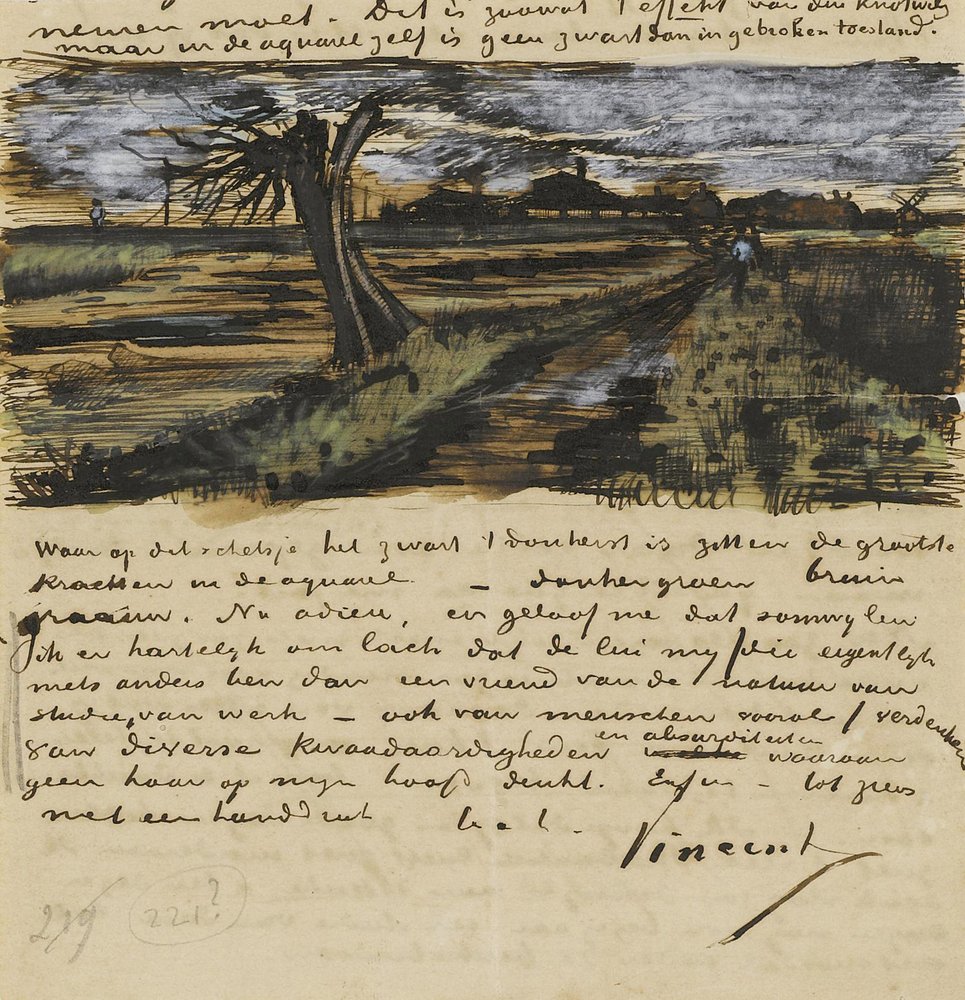 nemen moet. Dit is zoowat 't effekt van den knotwilg
maar in de aquarel zelf is geen zwart dan in gebroken toestand.
Waar op dit schetsje het zwart 't donkerst is zitten de grootste
krachten in de aquarel – donkergroen bruin
graauw. Nu adieu, en geloof me dat somwylen
ik er hartelyk om lach dat de lui my (die eigentlyk
niets anders ben dan een vriend van de natuur van
studie, van werk – ook van menschen vooral) verdenken
van diverse kwaadaardigheden en absurditeiten waaraan
geen haar op myn hoofd denkt. Enfin – tot ziens
met een handdruk t. à t.
Vincent
219
221?